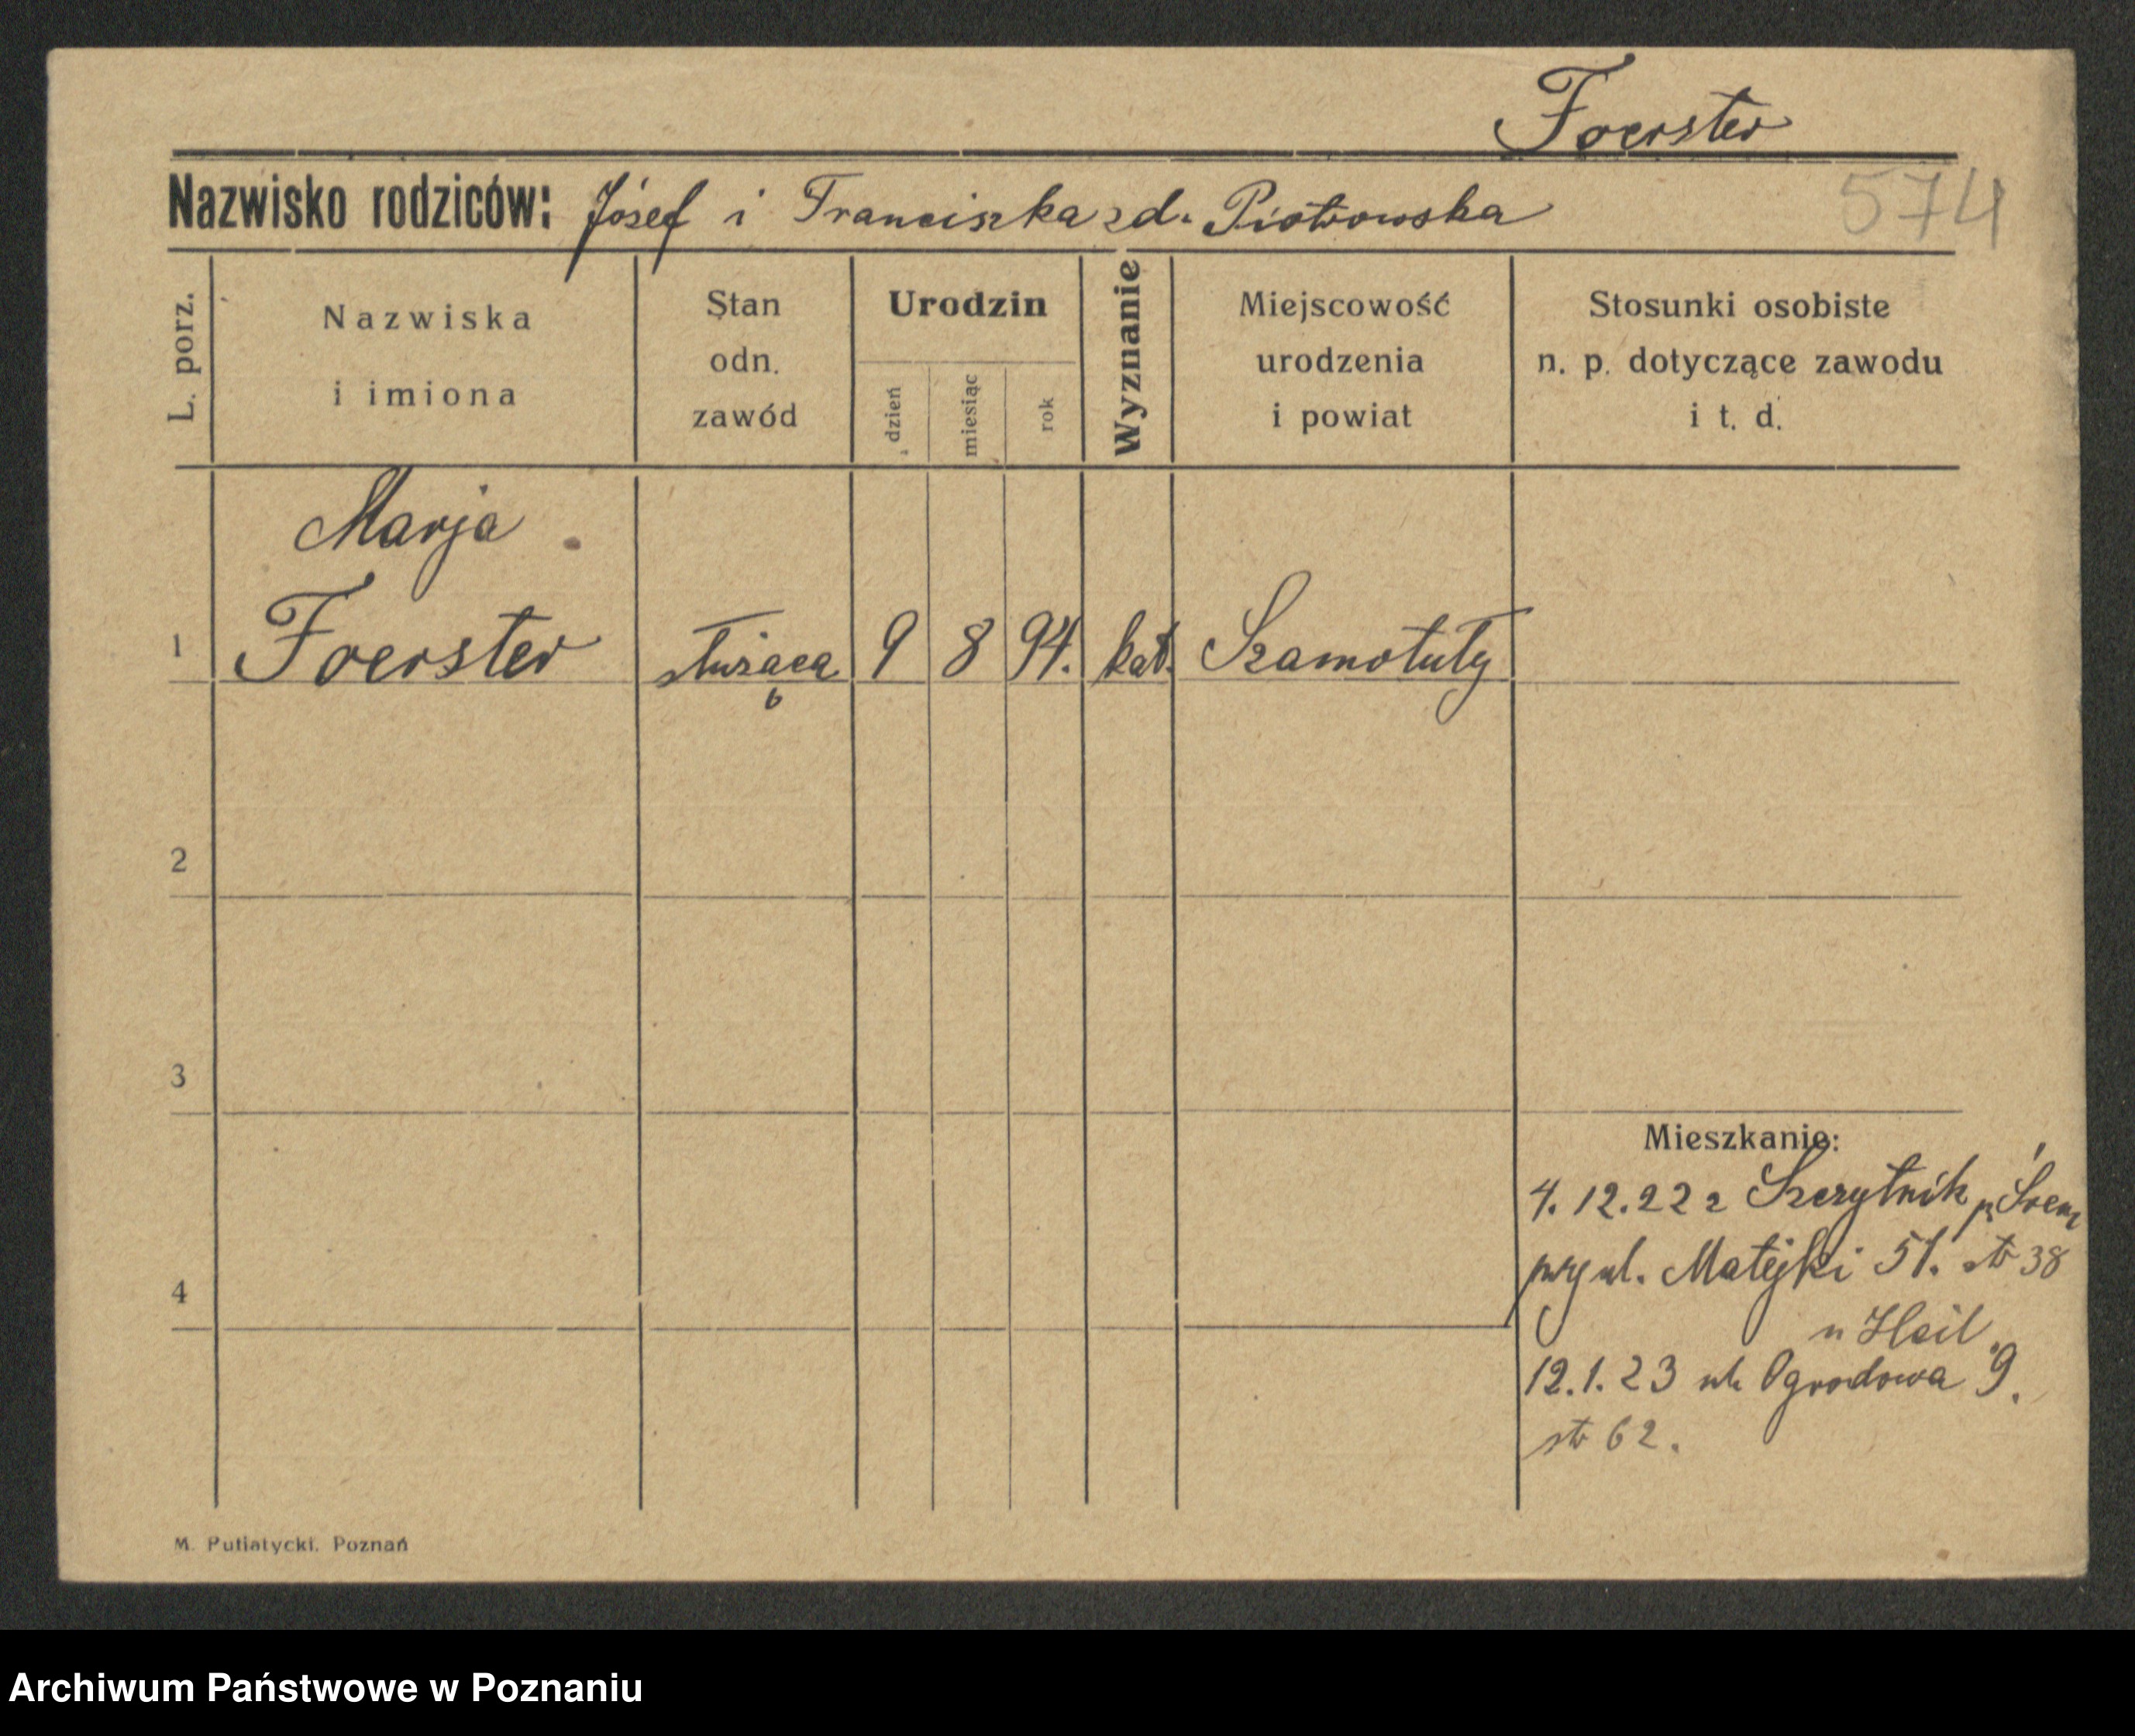 Foerster
Nazwisko rodziców: Józef i Franciszka zd. Piotrowska
574
L. porz.
Nazwiska
i imiona
Stan
odn.
zawód
Urodzin
dzień
miesiąc
rok
Wyznanie
Miejscowość
urodzenia
i powiat
Stosunki osobiste
n. p. dotyczące zawodu
i t. d.
Marja
1 Foerster służąca 9 8 94. kat. Szamotuły
2
3
4
Mieszkanie:
4. 12. 22 z Szczytnik p. Śrem
przy ul. Matejki 51. str 38
u Heil
12. 1. 23 ul. Ogrodowa 9.
str 62.
M. Putiatycki. Poznań
Archiwum Państwowe w Poznaniu